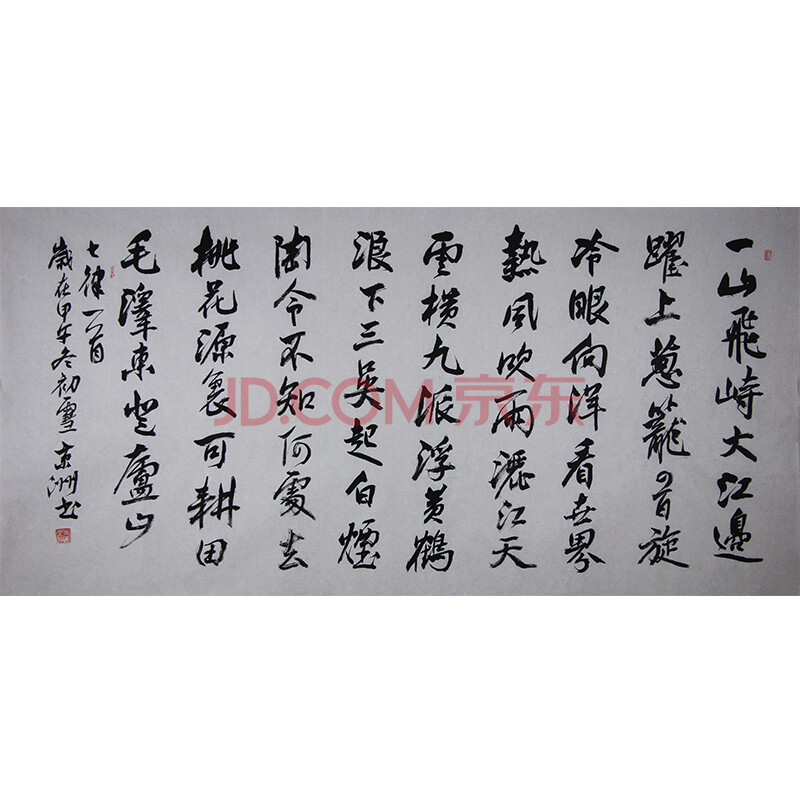 一山飛峙大江邊
躍上蔥籠四百旋
冷眼向洋看世界
熱風吹雨灑江天
雲橫九派浮黃鶴
浪下三吳起白煙
陶令不知何處去
桃花源裏可耕田
毛澤東登廬山
七律一首
歲在甲午冬初雪京洲书
JD.COM 京东